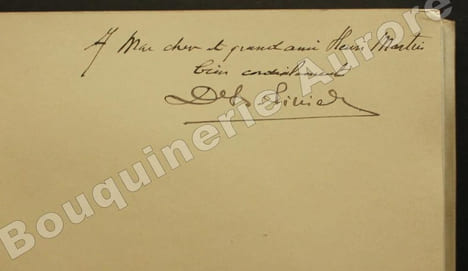 A Mon cher et grand ami Henri Martin
bien cordialement
Bouquinerie Aurore